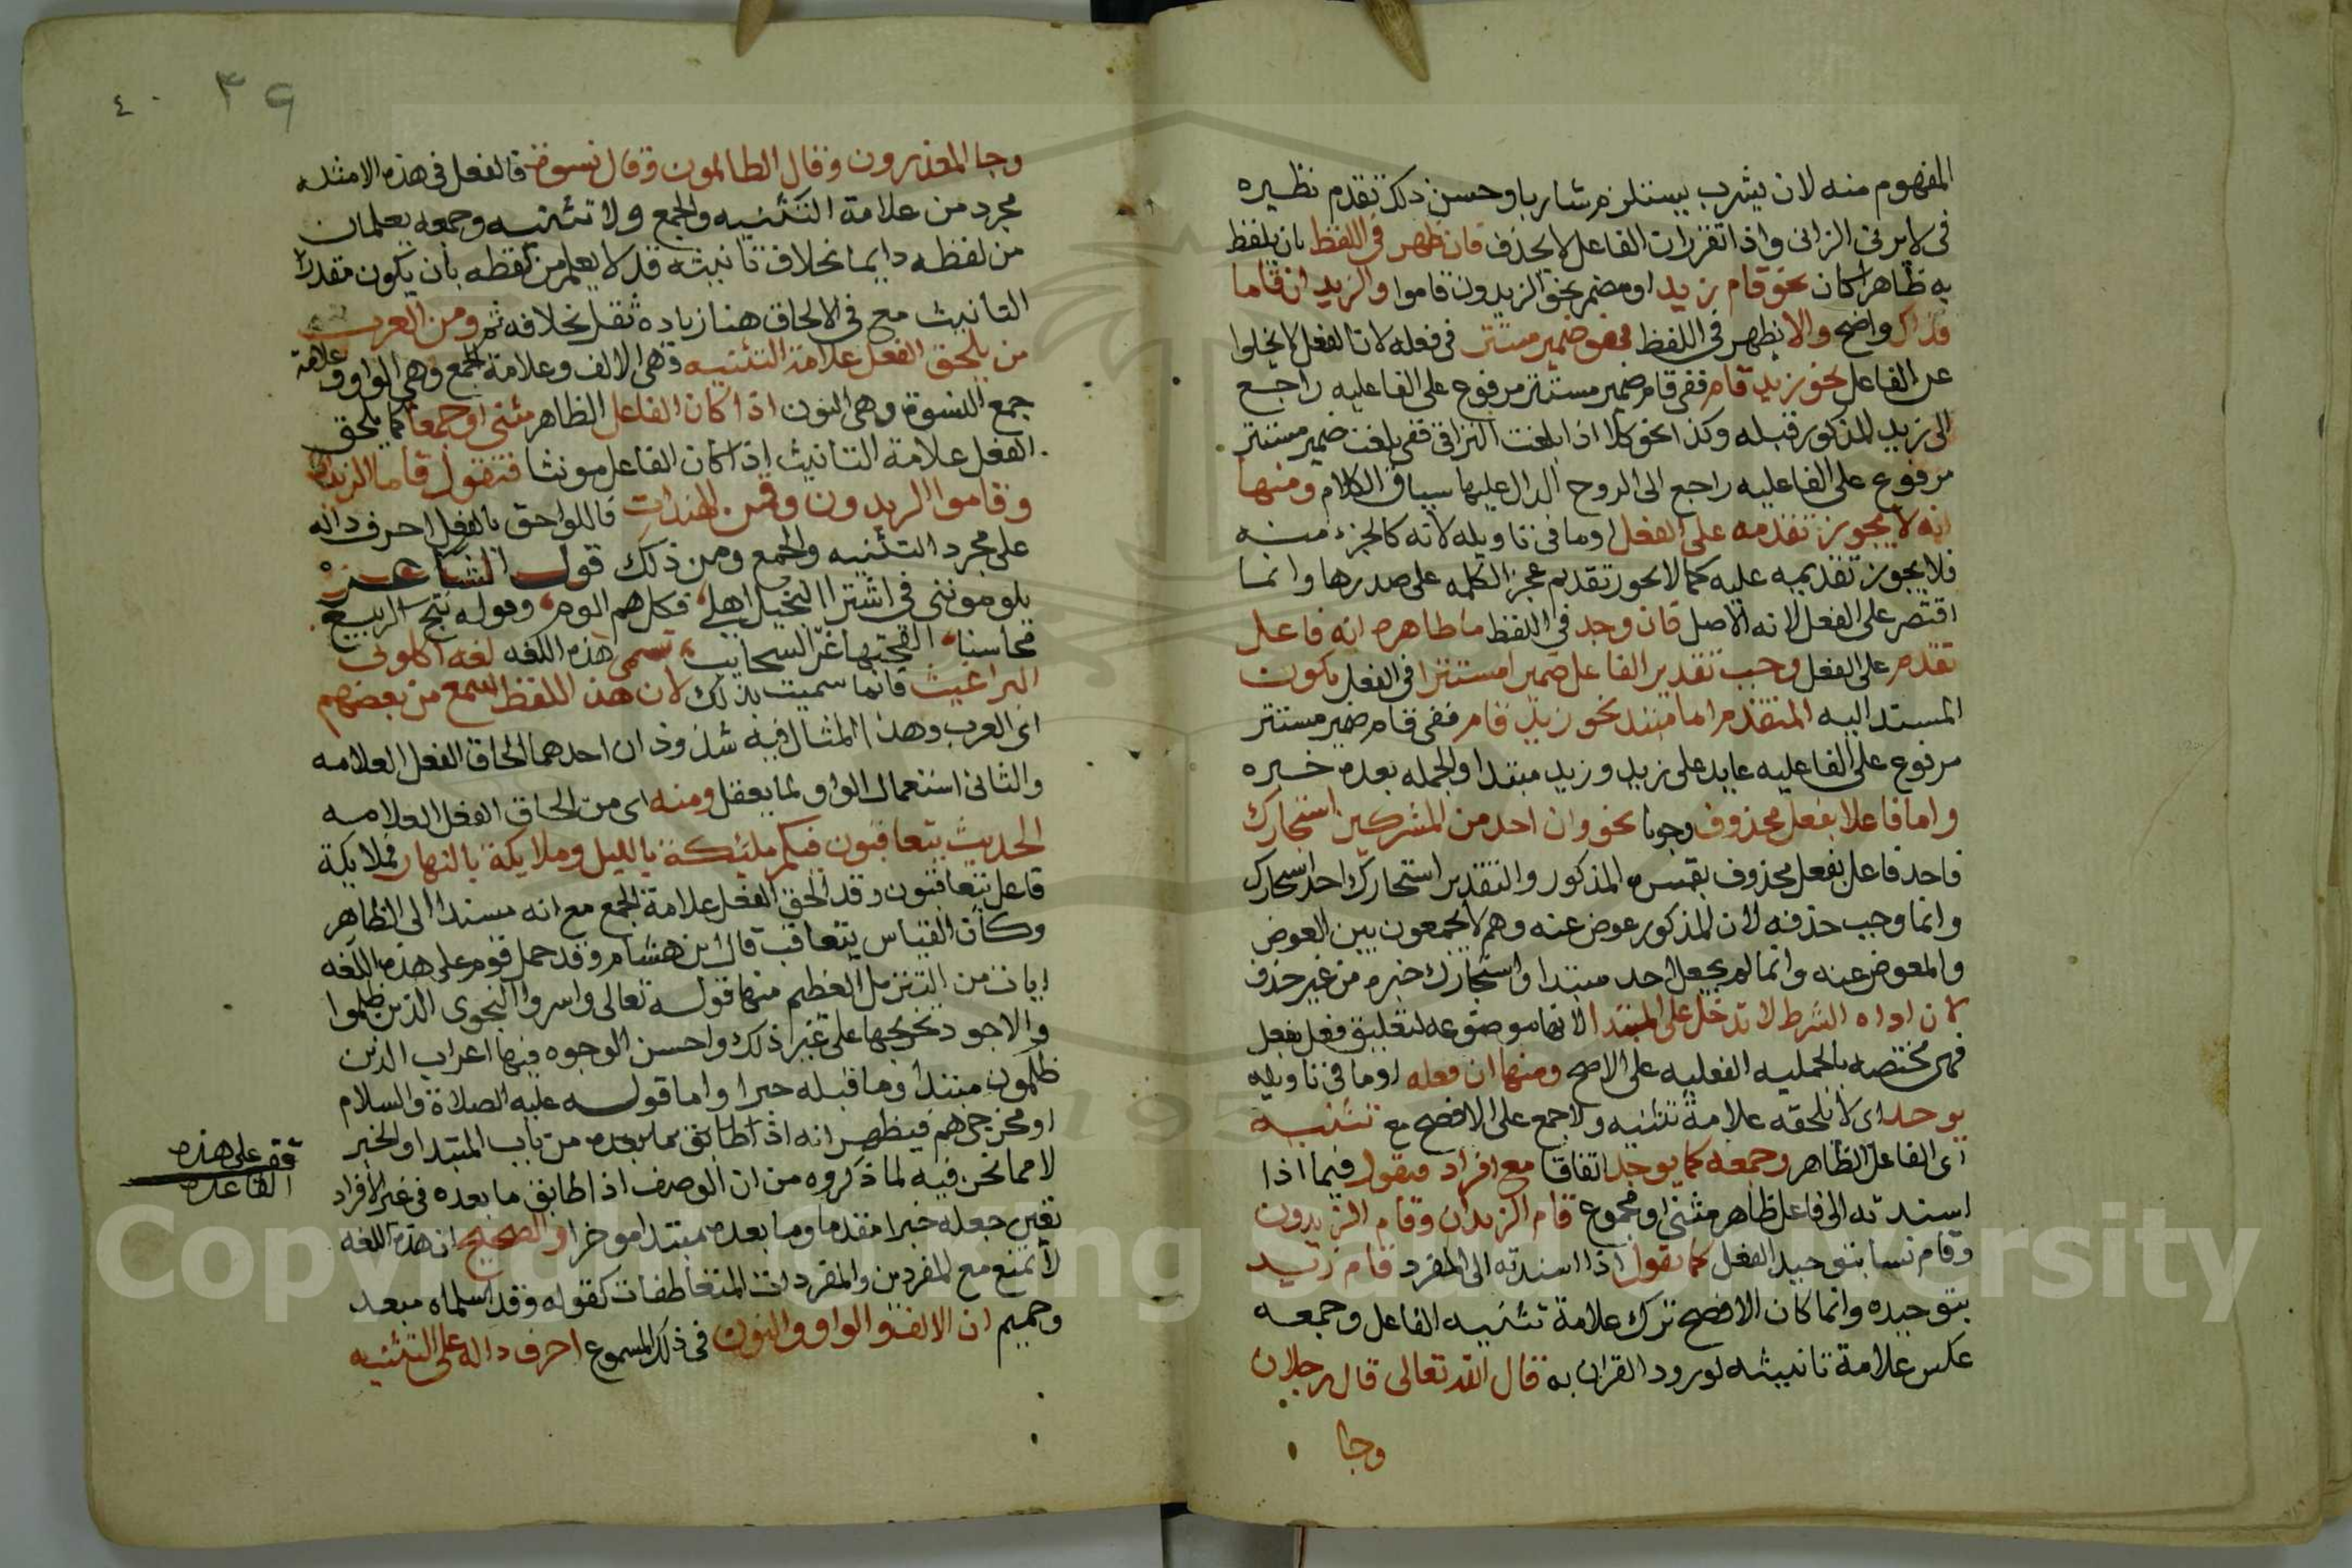 المفهوم منه لان يشرب يستلزم شاربا وحسن ذلك تقدم نظيره
فى لا يزنى الزانى واذا تقرر ان الفاعل لا يحذف فان ظهر فى اللفظ بان يلفظ
به ظاهرا كان نحو قام زيد او مضمر نحو الزيدون قاموا والزيدان قاما
فذاك واضح والا يظهر فى اللفظ فهو ضمير مستتر فى فعله لان الفعل لا يخلوا
عن الفاعل نحو زيد قام ففى قام ضمير مستتر مرفوع على الفاعليه راجع
الى زيد المذكور قبله وكذا نحو كلا اذا بلغت التراقى ففى بلغت ضمير مستتر
مرفوع على الفاعليه راجع الى الروح الدال عليها سياق الكلام ومنها
انه لا يجوز تقدمه على الفعل او ما فى تاويله لانه كالجزء منه
فلا يجوز تقديمه عليه كما لا يجوز تقديم عجز الكلمه على صدرها وانما
اقتصر على الفعل لانه الاصل فان وجد فى اللفظ ما ظاهره انه فاعل
تقدم على الفعل وجب تقدير الفاعل ضميرا مستترا فى الفعل يكون
المسند اليه المتقدم اما مبتدا نحو زيد قام ففى قام ضمير مستتر
مرفوع على الفاعليه عايد على زيد وزيد مبتدا والجمله بعده خبره
واما فاعلا بفعل محذوف وجوبا نحو وان احد من المشركين استجارك
فاحد فاعل بفعل محذوف يفسره المذكور والتقدير استجارك احد استجارك
وانما وجب حذفه لان المذكور عوض عنه وهم لا يجمعون بين العوض
والمعوض عنه وانما لم يجعل احد مبتدا واستجارك خبره من غير حذف
لان اداه الشرط لا تدخل على المبتدا لانها موضوعه لتعليق فعل بفعل
فهى مختصه بالجمليه الفعليه على الاصح ومنها ان فعله او ما فى تاويله
يوحد اى لا يلحقه علامة تثنيه ولا جمع على الافصح مع تثنيه
اى الفاعل الظاهر وجمعه كما يوحد اتفاقا مع افراد فيقول فيما اذا
اسندته الى فاعل ظاهر مثنى او مجموع قام الزيدان وقام الزيدون
وقام نسا بتوحيد الفعل كما تقول اذا اسندته الى المفرد قام زيد
بتوحيده وانما كان الافصح ترك علامة تثنيه الفاعل وجمعه
عكس علامة تانيثه لورود القران به قال الله تعالى قال رجلان
وجا
٣٩
٤٠
وجا المعذرون وقال الظالمون وقال نسوة فالفعل فى هذه الامثله
مجرد من علامة التثنيه والجمع ولا تثنيه وجمعه يعلمان
من لفظه دايما بخلاف تانيثه قد لا يعلم من لفظه بان يكون مقدر
التانيث مع فى الالحاق هنا زيادة ثقل بخلافه ثم ومن العرب
من يلحق الفعل علامة التثنيه وهى الالف وعلامة الجمع وهى الواو وعلامة
جمع النسوة وهى النون اذا كان الفاعل الظاهر مثنى او جمعا كما يلحق
الفعل علامة التانيث اذا كان الفاعل مونثا فتقول قاما الزيدان
وقاموا الزيدون وقمن الهندات فاللواحق بالفعل احرف داله
على مجرد التثنيه والجمع ومن ذلك قول الشاعر
يلوموننى فى اشترا النخيل اهلى فكلهم الوم وقوله نتج الربيع
محاسنا القحنها غر السحايب تسمى هذه اللغه لغه اكلونى
البراغيث فانما سميت بذلك لان هذا اللفظ سمع من بعضهم
اى العرب وهذا المثال فيه شذوذان احدهما الحاق الفعل العلامه
والثانى استعمال الواو لما يعقل ومنه اى من الحاق الفعل العلامه
الحديث يتعاقبون فيكم مليكة بالليل وملايكة بالنهار فملايكة
فاعل يتعاقبون وقد الحق الفعل علامة الجمع مع انه مسندا الى الظاهر
وكان القياس يتعاقب قال ابن هشام وقد حمل قوم على هذه اللغه
ايات من التنزيل العظيم منها قوله تعالى واسروا النجوى الذين ظلموا
والاجود تخريجها على غير ذلك واحسن الوجوه فيها اعراب الذين
ظلمون مبتدا وما قبله خبرا واما قوله عليه الصلاة والسلام
او مخرجى هم فيظهر انه اذا طابق ما بعده من باب المبتدا والخبر
لا مما نحن فيه لما ذكروه من ان الوصف اذا طابق ما بعده فى غير الافراد
تعين جعله خبرا مقدما وما بعده مبتدا موخرا والصحيح ان هذه اللغه
لا تمتنع مع المفردين والمفردات المتعاطفات كقوله وقد اسلماه مبعد
وحميم ان الالف والواو والنون فى ذلك المسموع احرف داله على التثنيه
قف على هذه
القاعده
Copyright © King Saud University
195